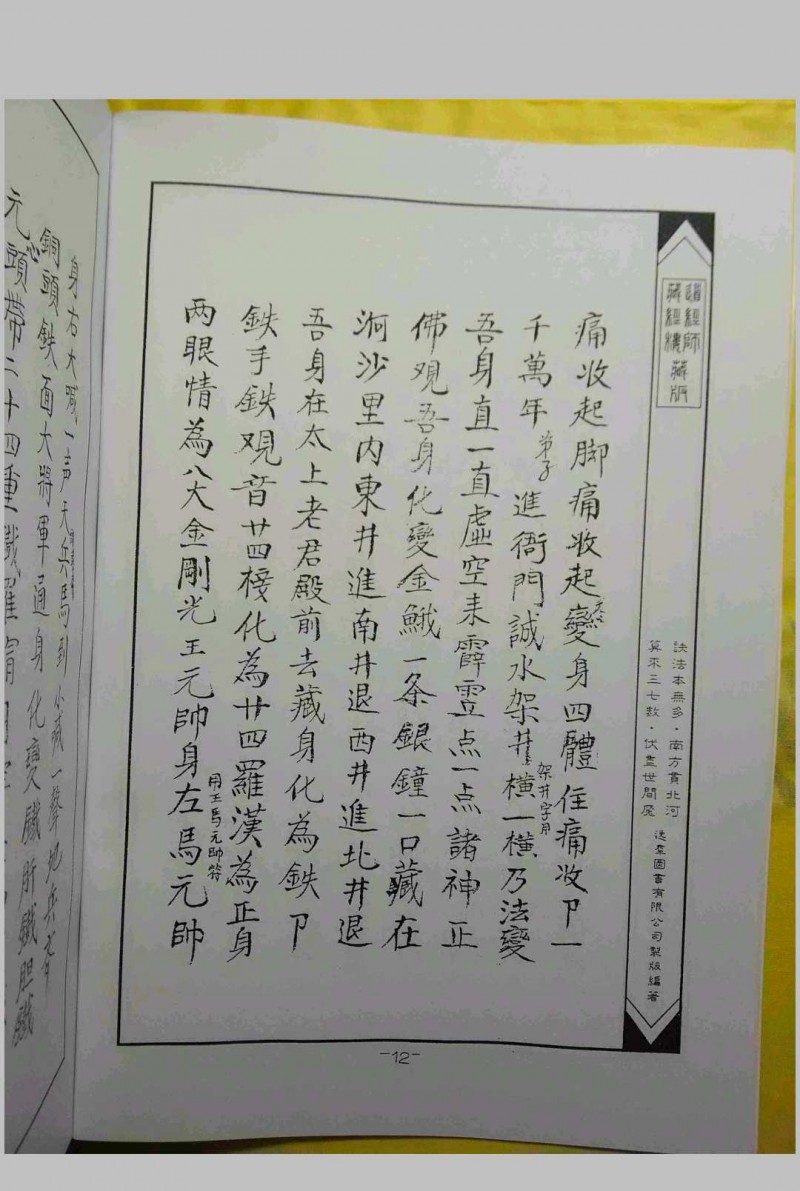 藏版
訣法本無多·南方貫北河
算來三七數·伏盡世間魔
逸羣圖書有限公司製版編著
痛收起脚痛收起變身四體住痛收卩一
千萬年弟子進衙門誠水架井橫一橫乃法變
架井字月
吾身直一直虛空來霹靂点一点諸神正
佛观吾身化變金鱥一条銀鐘一口藏在
河沙里内東井進南井退西井進北井退
吾身在太上老君殿前去藏身化為鉄卩
鉄手鉄观音廿四𣓉化為廿四羅漢為正身
用王馬元帥符
兩眼情為八大金剛光王元帥身左馬元帥
-12-
身右大喊一声天兵馬到小喊一聲地兵
銅頭鉄面大將軍通身化變鐵肝鐵胆鐵
心
元頭帶二十四重鐵羅